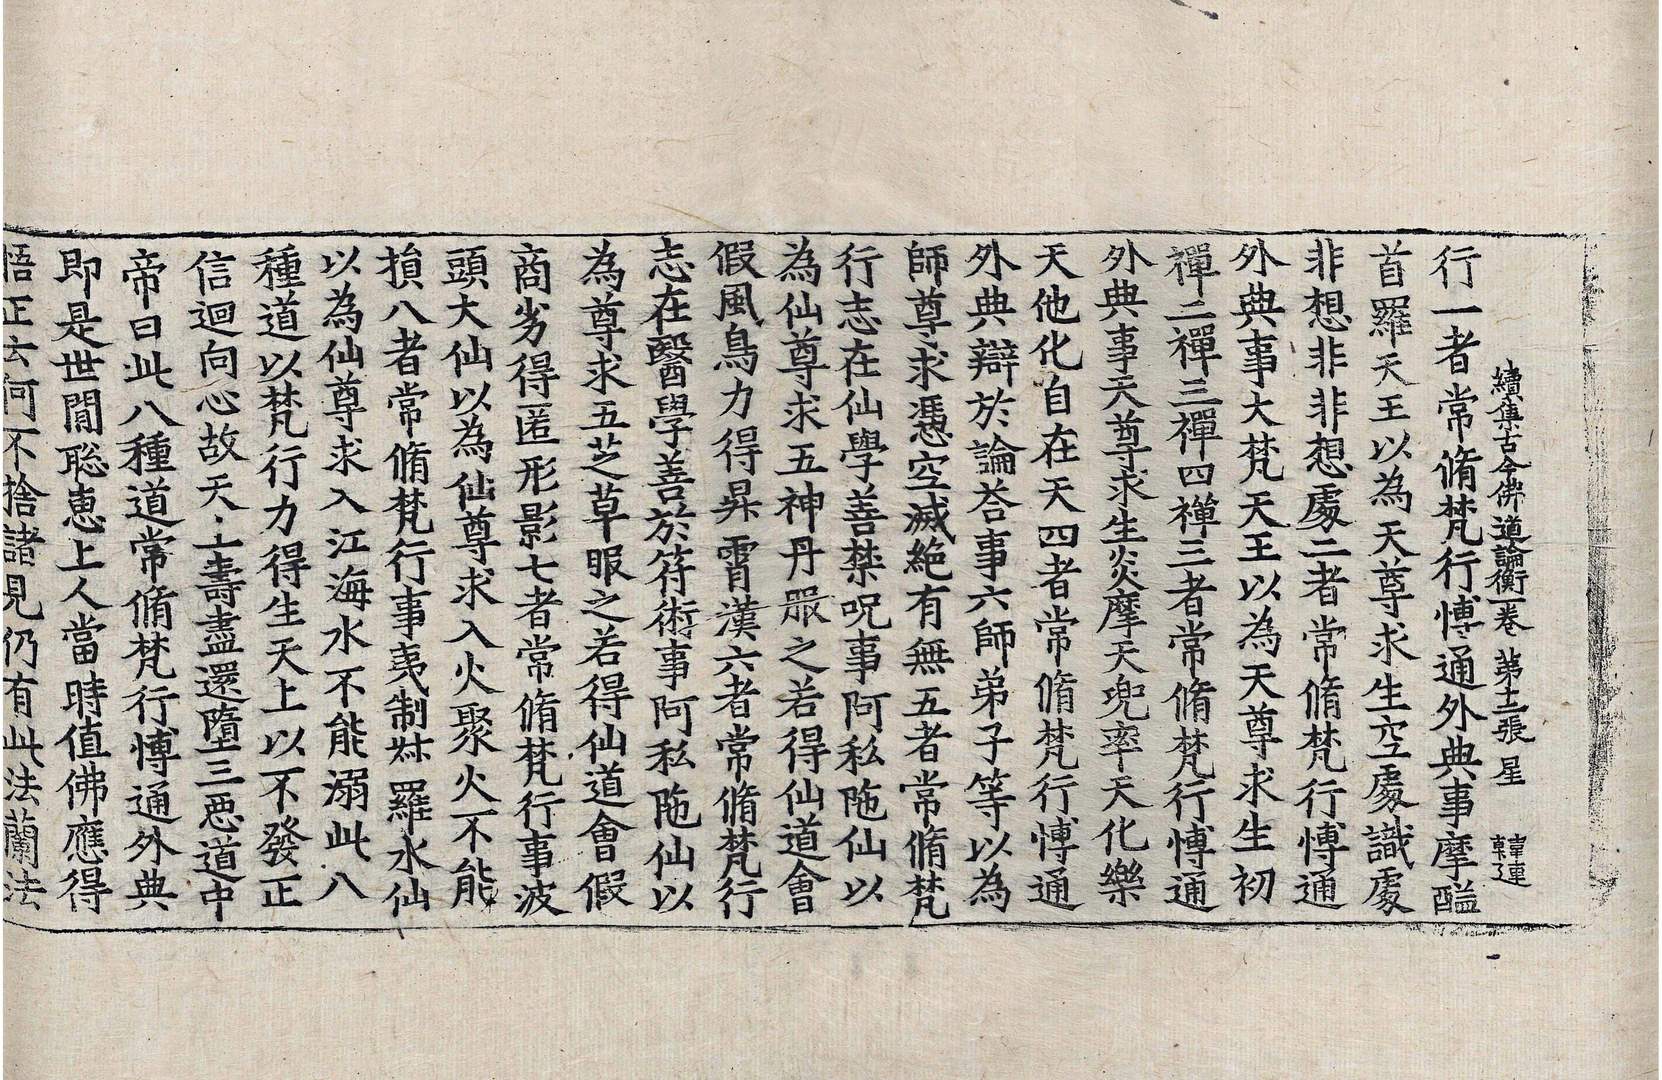 續集古今佛道論衡一卷 第十二張 星 韓連
行一者常脩梵行愽通外典事摩醯
首羅天王以為天尊求生空處識處
非想非非想處二者常脩梵行愽通
外典事大梵天王以為天尊求生初
禪二禪三禪四禪三者常脩梵行愽通
外典事天尊求生炎摩天兜率天化樂
天他化自在天四者常脩梵行愽通
外典辯於論荅事六師弟子等以為
師尊求憑空滅絶有無五者常脩梵
行志在仙學善禁呪事阿私陁仙以
為仙尊求五神丹服之若得仙道會
假風鳥力得昇霄漢六者常脩梵行
志在醫學善於符術事阿私陁仙以
為尊求五芝草服之若得仙道會假
商劣得匿形影七者常脩梵行事波
頭大仙以為仙尊求入火聚火不能
損八者常脩梵行事夷制𣏌羅水仙
以為仙尊求入江海水不能溺此八
種道以梵行力得生天上以不發正
信迴向心故天上壽盡還墮三惡道中
帝曰此八種道常脩梵行愽通外典
即是世間聡惠上人當時值佛應得
悟正云何不捨諸見仍有此法蘭法